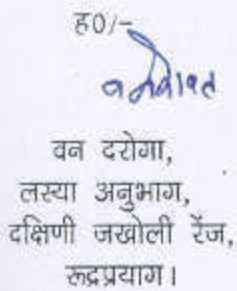 ह0/-
वन दरोगा,
लस्या अनुभाग,
दक्षिणी जखोली रेंज,
रूद्रप्रयाग।